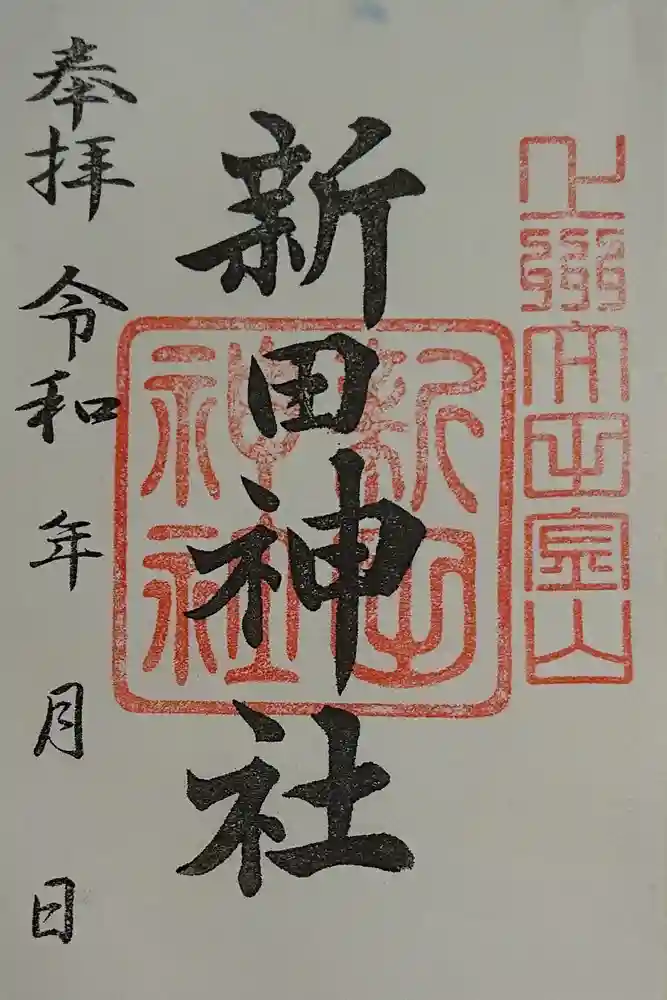 上州太田金山
新田神社
新田
神社
奉拝 令和 年 月 日